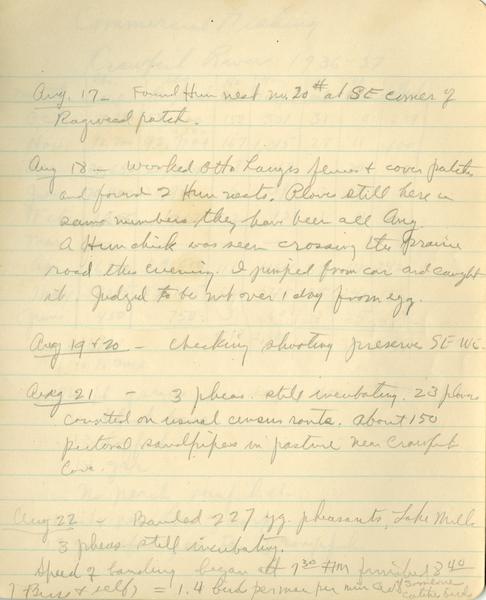 Aug. 17 - Found Hun nest no. 20# at SE corner of
Ragweed patch.
Aug 18 - Worked Otto Langes fences + cover patches
and found 2 Hun nests. Plover still here in
same numbers they have been all Aug.
A Hun chick was seen crossing the prairie
road this evening. I jumped from car and caught
it. Judged to be not over 1 day from egg.
Aug 19 + 20 - Checking shooting preserve SE Wis.
Aug 21 - 3 pheas. still incubating. 23 plover
counted on usual census route. About 150
pectoral sandpipers in pasture near Crawfish
Cove.
Aug 22 - Banded 227 yg. pheasants, Lake Mills
3 pheas still incubating.
Speed of banding began at 7 30 PM finished 8 40
+ self) = 1.4 bird per man per min if someone
catches birds